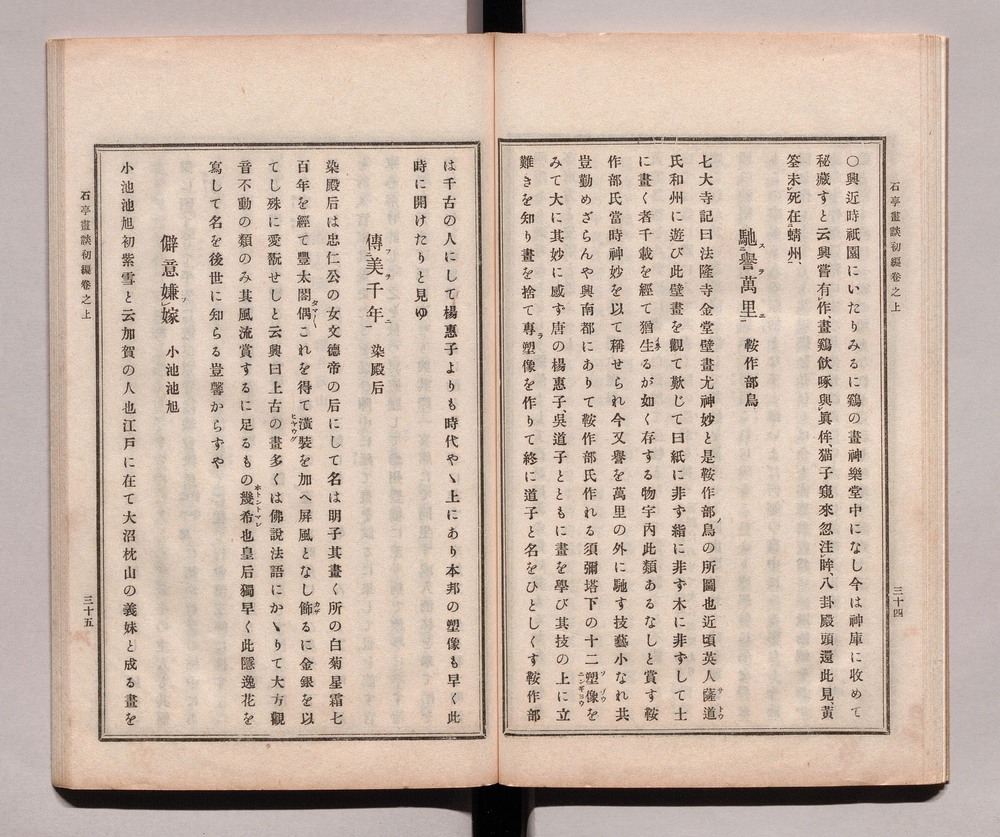 石亭畫談初編卷之上
三十四
〇興近時祇園にいたりみるに鷄の畫神樂堂中になし今は神庫に收めて
秘藏すと云興嘗有作、畫鷄飮啄與眞侔、猫子窺來忽注眸、八卦殿頭還此見、黃
筌未死在蜻州、
馳譽萬里 鞍作部鳥
七大寺記曰法隆寺金堂壁畫尤神妙と是鞍作部鳥の所圖也近頃英人薩道
氏和州に遊び此壁畫を觀て歎じて曰紙に非す絹に非す木に非ずして土
に畫く者千載を經て猶生るが如く存する物宇內此類あるなしと賞す鞍
作部氏當時神妙を以て稱せられ今又譽を萬里の外に馳す技藝小なれ共
豈勤めざらんや興南都にありて鞍作部氏作れる須彌塔下の十二塑像を
みて大に其妙に感す唐の楊惠子、吳道子とともに畫を學び其技の上に立
難きを知り畫を捨て專塑像を作りて終に道子と名をひとしくす鞍作部
は千古の人にして楊惠子よりも時代やゝ上にあり本邦の塑像も早く此
時に開けたりと見ゆ
傳美千年 染殿后
染殿后は忠仁公の女文德帝の后にして名は明子其畫く所の白菊星霜七
百年を經て豐太閤偶これを得て潢裝を加へ屏風となし飾るに金銀を以
てし殊に愛翫せしと云興曰上古の畫多くは佛說法語にかゝりて大方觀
音不動の類のみ其風流賞するに足るもの幾希也皇后獨早く此隱逸花を
寫して名を後世に知らる豈馨からすや
僻意嫌嫁 小池池旭
小池池旭初紫雪と云加賀の人也江戸に在て大沼枕山の義妹と成る畫を
石亭畫談初編卷之上
三十五